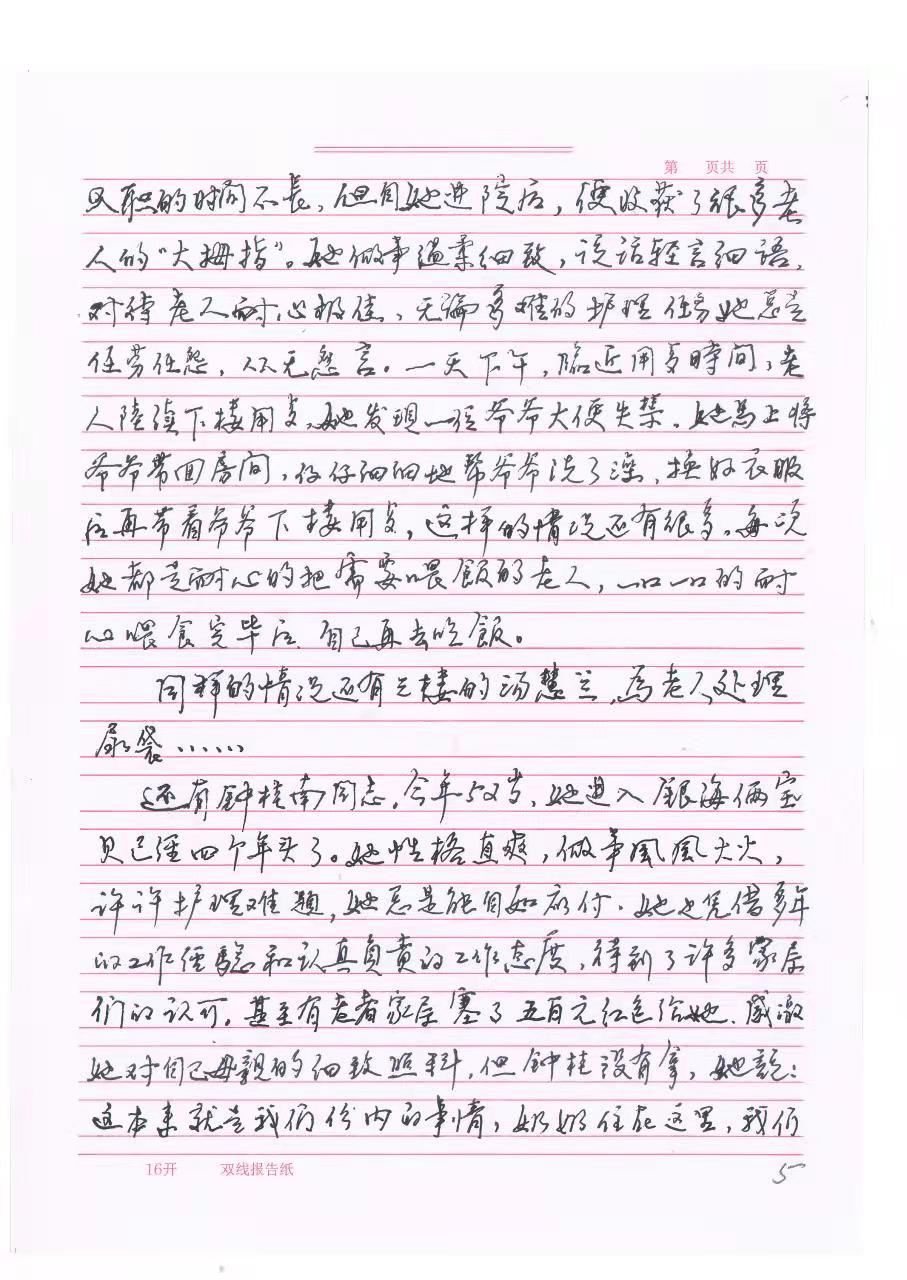 第 页共 页
职的时间不长，但自她进院后，便收获了很多老
人的“大拇指”。她做事温柔细致，说话轻言细语，
对待老人耐心极佳，无论多难的护理任务她总是
任劳任怨，从无怨言。一天下午，临近用歺時间，老
人陸續下楼用歺，她发现一位爷爷大便失禁，她馬上将
爷爷带回房间，仔仔细细地帮爷爷洗了澡，换好衣服
后再带着爷爷下楼用歺，这样的情况还有很多，每次
她都是耐心的把需要喂飯的老人，一口一口的耐
心喂食完毕后，自己再去吃飯。
同样的情况还有三楼的汤慧兰，為老人处理
尿袋……
还有钟桂南同志，今年52岁，她进入银海俩宝
贝已经四个年头了。她性格直爽，做事風風火火，
许许护理难题，她总是能自如应付，她也凭借多年
的工作经驗和认真負责的工作态度，得到了许多家属
们的认可。甚至有老者家属塞了五百元红包给她，感激
她对自己母親的细致照料，但钟桂没有拿，她說：
这本来就是我们份内的事情，奶奶住在这里，我们
16开 双线报告纸
5